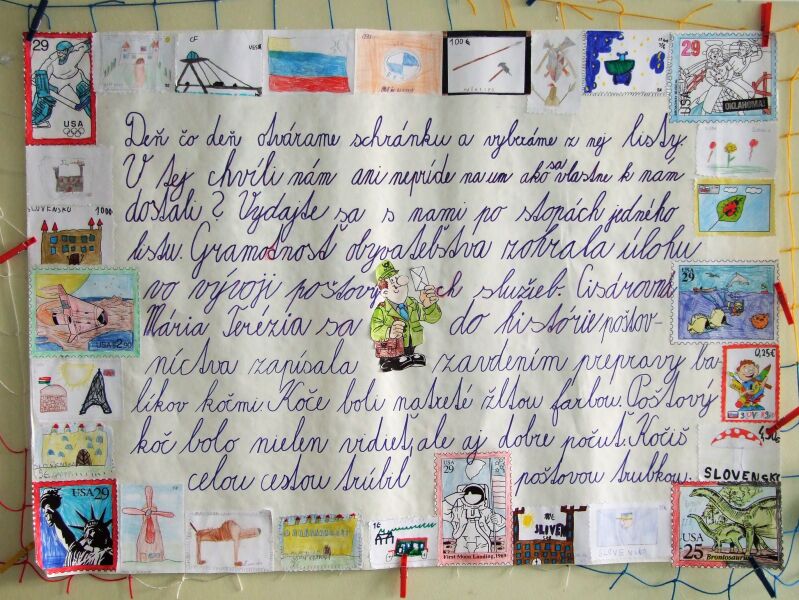 29
USA
CF
100 €
29
USA
OKLAHOMA!
Deň čo deň otvárame schránku a vyberáme z nej listy.
V tej chvíli nám ani nepríde na um ako sa vlastne k nám
dostali? Vydajte sa s nami po stopách jedného
listu. Gramotnosť obyvateľstva zohrala úlohu
vo vývoji poštových služieb. Cisárovná
Mária Terézia sa do histórie poštov-
níctva zapísala zavdením prepravy ba
líkov kočmi. Koče boli natreté žltou farbou. Poštový
koč bolo nielen vidieť, ale aj dobre počuť. Kočiš
celou cestou trúbil poštovou trubkou.
SLOVENSKO 1000
USA $2.90
29
0,25€
SLOVENSKO
USA 29
USA
29
First Moon Landing, 1969
SLOVENSKO
USA
25
Brontosaurus